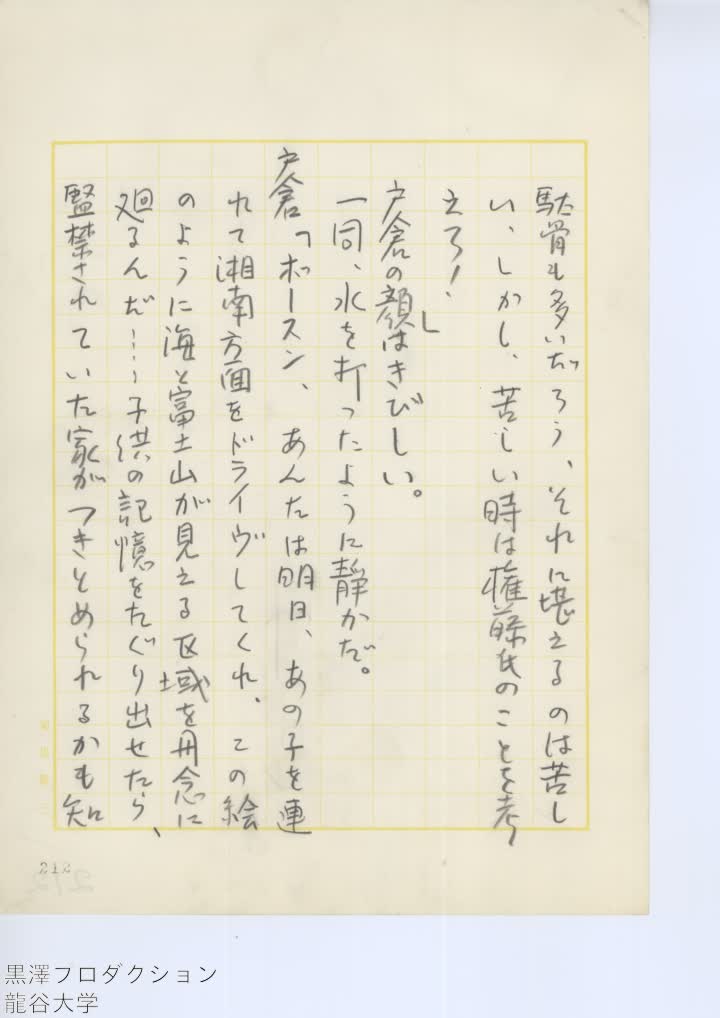 駄骨も多いだろう、それに堪えるのは苦し
い、しかし、苦しい時は権藤氏のことを考
えろ！」
戸倉の顔はきびしい。
一同、水を打ったように静かだ。
戸倉「ボースン、あんたは明日、あの子を連
れて湘南方面をドライヴしてくれ、この絵
のように海と富士山が見える区域を丹念に
廻るんだ……子供の記憶をたぐり出せたら、
監禁されていた家がつきとめられるかも知
212
黒澤プロダクション
龍谷大学